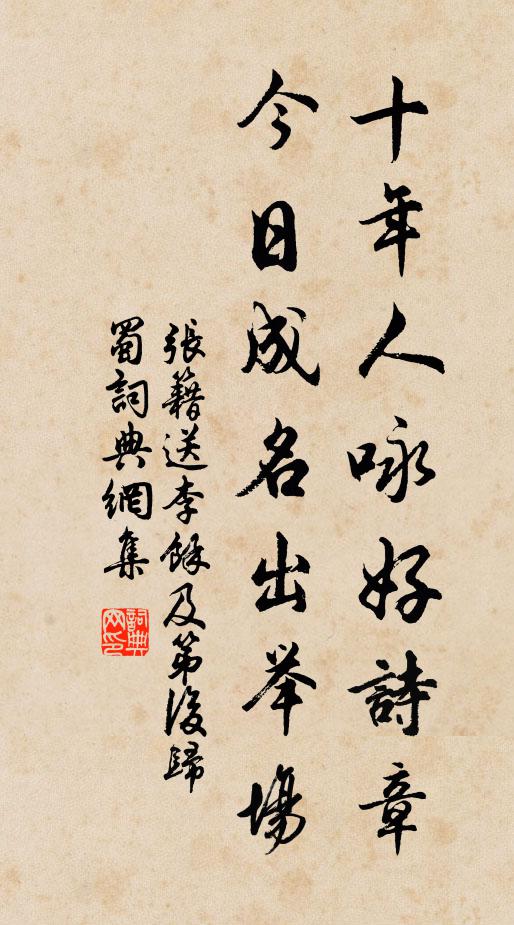 十年人咏好詩章
今日成名出举場
張籍送李餘及第後歸
蜀詞典網集
詞典网印